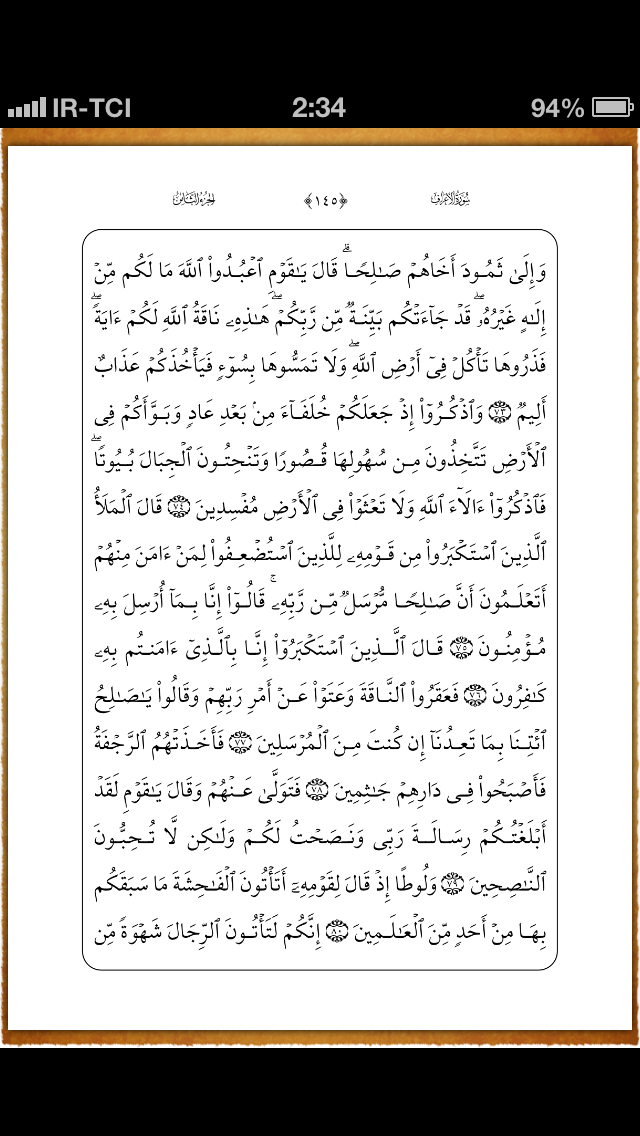 IR-TCI 2:34 94%
سُورَةُ الْأَعْرَافِ ﴿١٤٥﴾ الْجُزْءُ الثَّامِنُ
وَإِلَىٰ ثَمُودَ أَخَاهُمْ صَـٰلِحًاۗ قَالَ يَـٰقَوْمِ ٱعْبُدُوا۟ ٱللَّهَ مَا لَكُم مِّنْ
إِلَـٰهٍ غَيْرُهُۥۖ قَدْ جَآءَتْكُم بَيِّنَةٌ مِّن رَّبِّكُمْۖ هَـٰذِهِۦ نَاقَةُ ٱللَّهِ لَكُمْ ءَايَةًۖ
فَذَرُوهَا تَأْكُلْ فِىٓ أَرْضِ ٱللَّهِۖ وَلَا تَمَسُّوهَا بِسُوٓءٍ فَيَأْخُذَكُمْ عَذَابٌ
أَلِيمٌ ٧٣ وَٱذْكُرُوٓا۟ إِذْ جَعَلَكُمْ خُلَفَآءَ مِنۢ بَعْدِ عَادٍ وَبَوَّأَكُمْ فِى
ٱلْأَرْضِ تَتَّخِذُونَ مِن سُهُولِهَا قُصُورًا وَتَنْحِتُونَ ٱلْجِبَالَ بُيُوتًاۖ
فَٱذْكُرُوٓا۟ ءَالَآءَ ٱللَّهِ وَلَا تَعْثَوْا۟ فِى ٱلْأَرْضِ مُفْسِدِينَ ٧٤ قَالَ ٱلْمَلَأُ
ٱلَّذِينَ ٱسْتَكْبَرُوا۟ مِن قَوْمِهِۦ لِلَّذِينَ ٱسْتُضْعِفُوا۟ لِمَنْ ءَامَنَ مِنْهُمْ
أَتَعْلَمُونَ أَنَّ صَـٰلِحًا مُّرْسَلٌ مِّن رَّبِّهِۦۚ قَالُوٓا۟ إِنَّا بِمَآ أُرْسِلَ بِهِۦ
مُؤْمِنُونَ ٧٥ قَالَ ٱلَّذِينَ ٱسْتَكْبَرُوٓا۟ إِنَّا بِٱلَّذِىٓ ءَامَنتُم بِهِۦ
كَـٰفِرُونَ ٧٦ فَعَقَرُوا۟ ٱلنَّاقَةَ وَعَتَوْا۟ عَنْ أَمْرِ رَبِّهِمْ وَقَالُوا۟ يَـٰصَـٰلِحُ
ٱئْتِنَا بِمَا تَعِدُنَآ إِن كُنتَ مِنَ ٱلْمُرْسَلِينَ ٧٧ فَأَخَذَتْهُمُ ٱلرَّجْفَةُ
فَأَصْبَحُوا۟ فِى دَارِهِمْ جَـٰثِمِينَ ٧٨ فَتَوَلَّىٰ عَنْهُمْ وَقَالَ يَـٰقَوْمِ لَقَدْ
أَبْلَغْتُكُمْ رِسَالَةَ رَبِّى وَنَصَحْتُ لَكُمْ وَلَـٰكِن لَّا تُحِبُّونَ
ٱلنَّـٰصِحِينَ ٧٩ وَلُوطًا إِذْ قَالَ لِقَوْمِهِۦٓ أَتَأْتُونَ ٱلْفَـٰحِشَةَ مَا سَبَقَكُم
بِهَا مِنْ أَحَدٍ مِّنَ ٱلْعَـٰلَمِينَ ٨٠ إِنَّكُمْ لَتَأْتُونَ ٱلرِّجَالَ شَهْوَةً مِّن